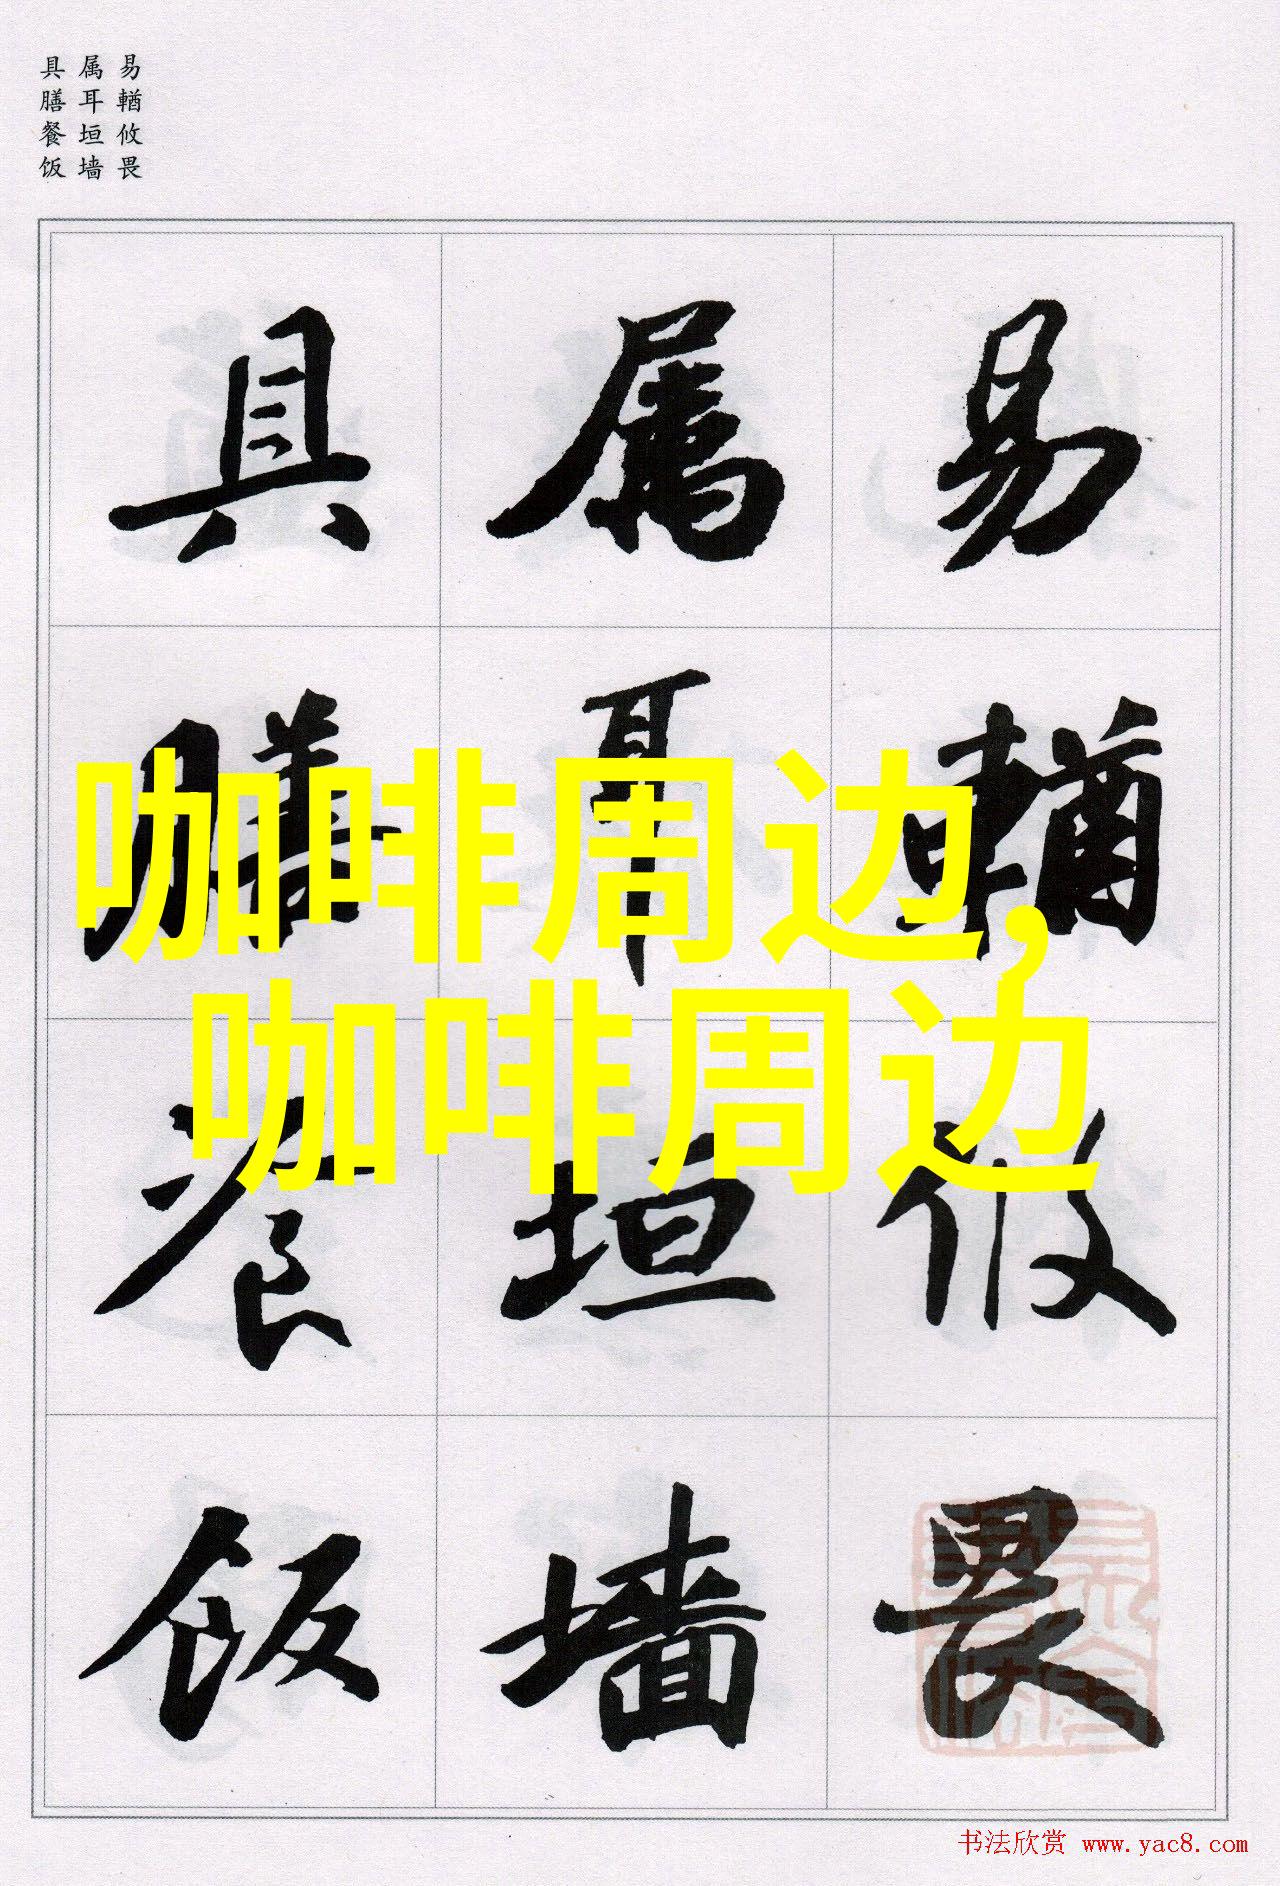 易輶攸畏
属耳垣墙
具膳餐饭
易輶攸畏
属耳垣墙
具膳餐饭
咖啡周边,
咖啡周边
书法欣赏 www.yac8.com